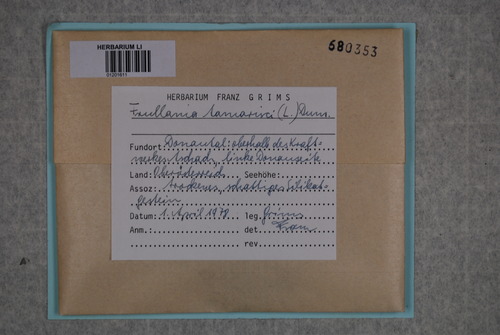 HERBARIUM LI
01201611
680353
HERBARIUM FRANZ GRIMS
Frullania tamarisci (L.) Dum.
Fundort: Donautal: oberhalb des Kraft-
werkes Aschach, linke Donauseite
Land: Oberösterreich Seehöhe:
Assoz: trockenes, schattiges Silikat-
gestein
Datum: 1. April 1979 leg. Grims
Anm.: det. Grims
rev.